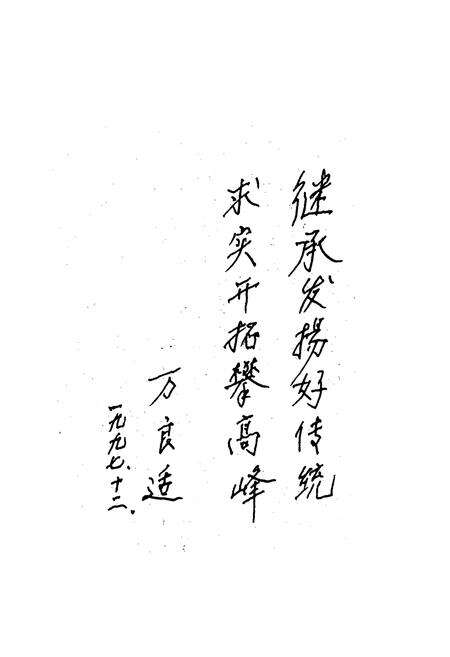 继承发揚好传统
求实开拓攀高峰
万良适
一九九七.十二.